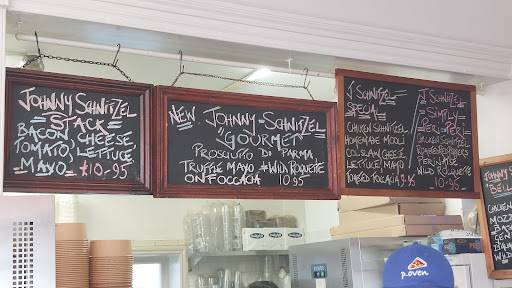 JOHNNY SCHNITZEL
STACK
BACON, CHEESE
TOMATO, LETTUCE,
MAYO £10-95
NEW JOHNNY SCHNITZEL
"GOURMET"
PROSCUITO DI PARMA,
TRUFFLE MAYO + WILD ROQUETTE
ON FOCCACIA 10.95
J. SCHNITZEL
SPECIAL
CHICKEN SCHNITZEL
HOMEMADE
COLESLAW, CHEESE
LETTUCE, MAYO
TOASTED FOCCACIA
J. SCHNITZEL
SIMPLY
PERi-PERi
CHICKEN SCHNITZEL
PERINAISE
WILD ROQUETTE
10.95
JOHNNY S
BELL
CHICKEN
MOZZ
p.oven